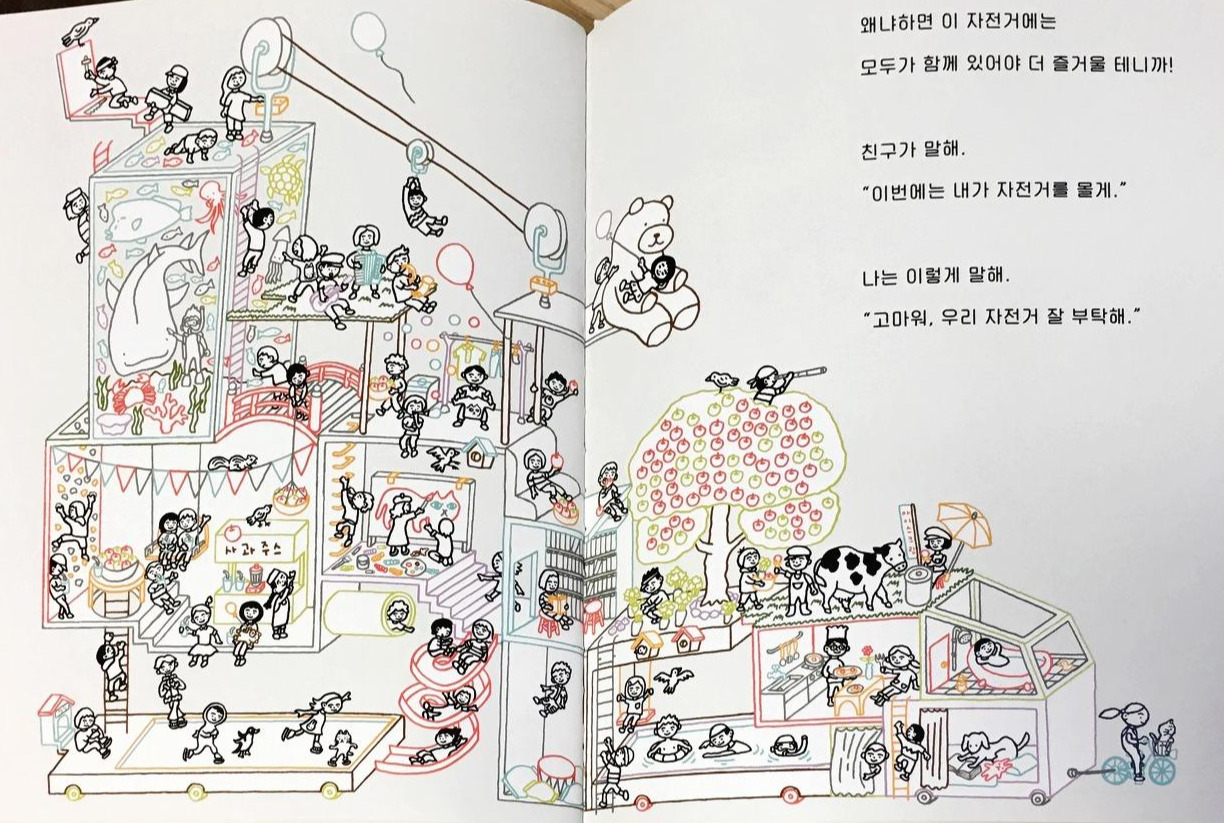 왜냐하면 이 자전거에는
모두가 함께 있어야 더 즐거울 테니까!
친구가 말해.
“이번에는 내가 자전거를 몰게.”
나는 이렇게 말해.
“고마워, 우리 자전거 잘 부탁해.”
사과주스